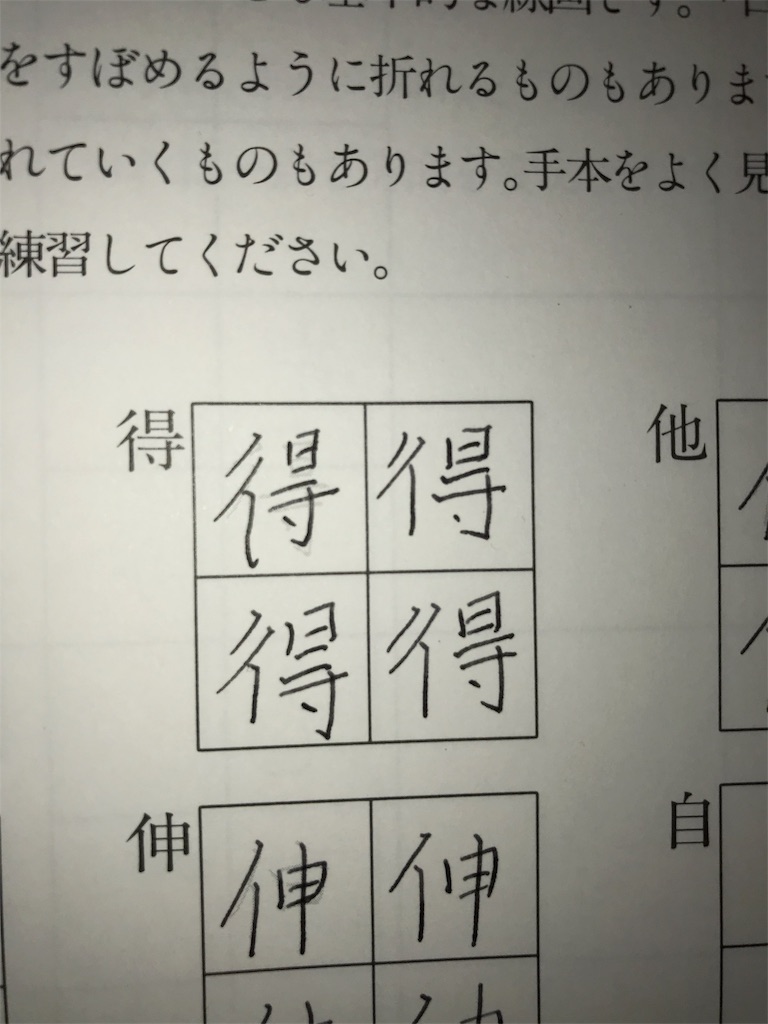 をすぼめるように折れるものもありま
れていくものもあります。手本をよく見
練習してください。
得 得 得 他
得 得
伸 伸 伸 自